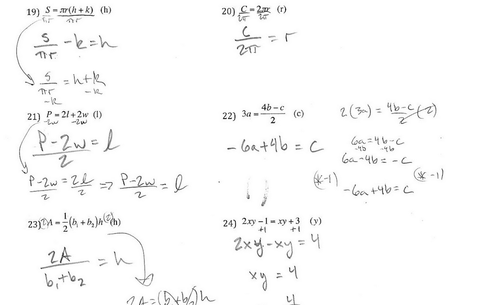 19) S = πr(h + k) (h)
2π πr
S/πr - k = h
S/πr = h + k
-k -k
20) C = 2πr (r)
2π 2π
C/2π = r
21) P = 2l + 2w (l)
-2w -2w
P - 2w/2 = l
P - 2w/2 = 2l/2 ⇒ P - 2w/2 = l
22) 3a = 4b - c/2 (c)
2(3a) = 4b - c/2 (2)
-6a + 4b = c
6a = 4b - c
-4b -4b
6a - 4b = -c
(* -1) (* -1)
-6a + 4b = c
23) ② A = 1/2 (b₁ + b₂)h ② (h)
2A/b₁ + b₂ = h
2A = (b₁ + b₂)h
24) 2xy - 1 = xy + 3 (y)
+1 +1
2xy - xy = 4
xy = 4
4